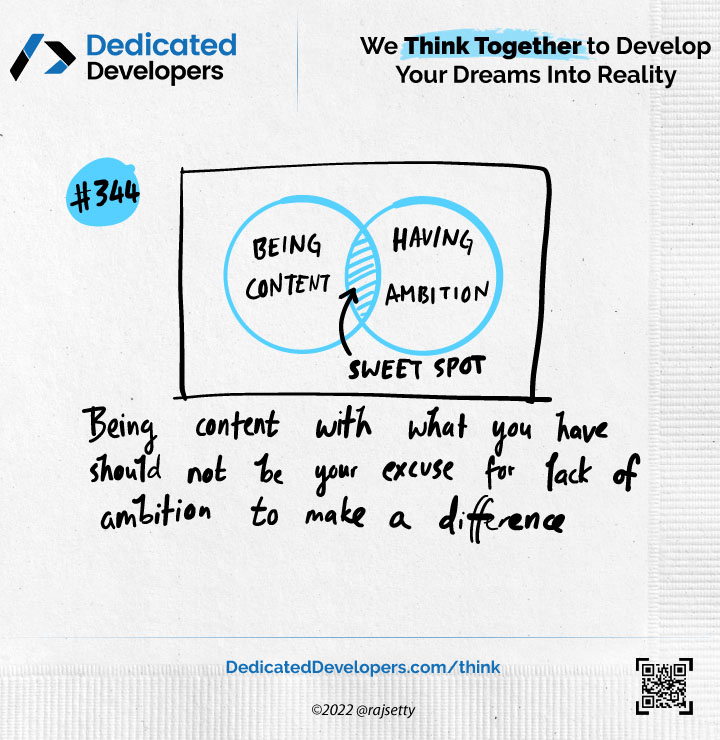 Dedicated
Developers
We Think Together to Develop
Your Dreams Into Reality
#344
BEING
CONTENT
HAVING
AMBITION
SWEET SPOT
Being content with what you have
should not be your excuse for lack of
ambition to make a difference
DedicatedDevelopers.com/think
©2022 @rajsetty